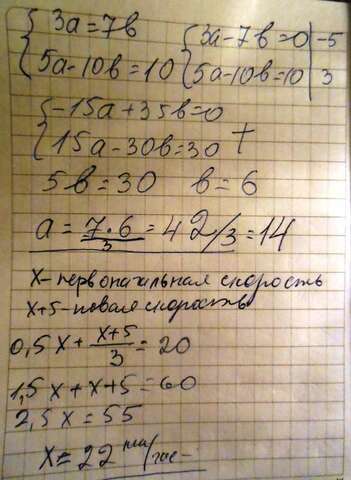 {3a=7b {3a-7b=0|-5
{5a-10b=10 {5a-10b=10|3
{-15a+35b=0
{15a-30b=30 +
5b=30 b=6
a=7·6/3=42/3=14
x-первоначальная скорость
x+5-новая скорость
0,5x+(x+5)/3=20
1,5x+x+5=60
2,5x=55
x=22 км/час